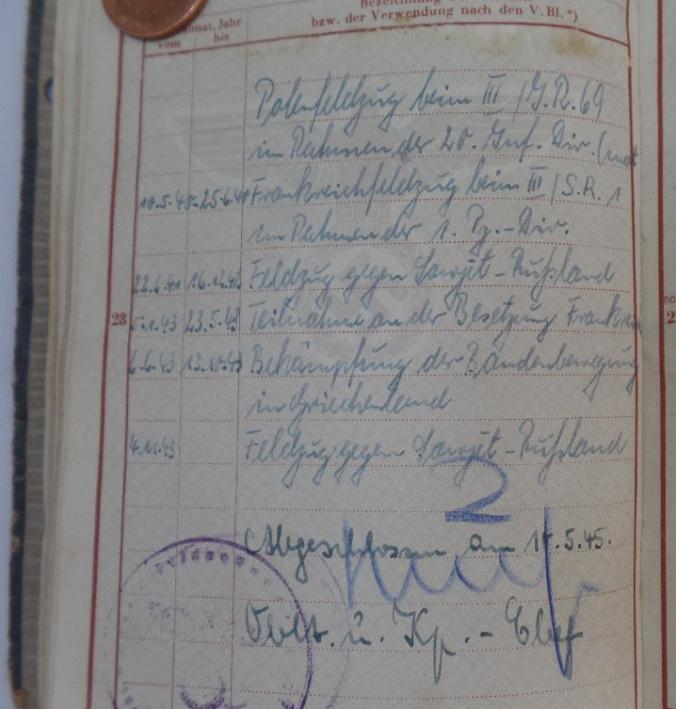 Monat, Jahr
vom bis
bzw. der Verwendung nach den V. Bl. *)
Polenfeldzug beim III / J.R. 69
im Rahmen der 20. Inf. Div. (mot
10.5.40 25.6.40 Frankreichfeldzug beim III / S.R. 1
im Rahmen der 1. Pz.-Div.
22.6.41 Feldzug gegen Sowjet-Rußland
23
5.1.43 23.5.43 Teilnahme an der Besetzung Frankrei
6.6.43 Bekämpfung der Bandenbewegung
in Griechenland
4.11.43 Feldzug gegen Sowjet-Rußland
2
Abgeschlossen am 5.45.
Oblt. u. Kp.-Chef